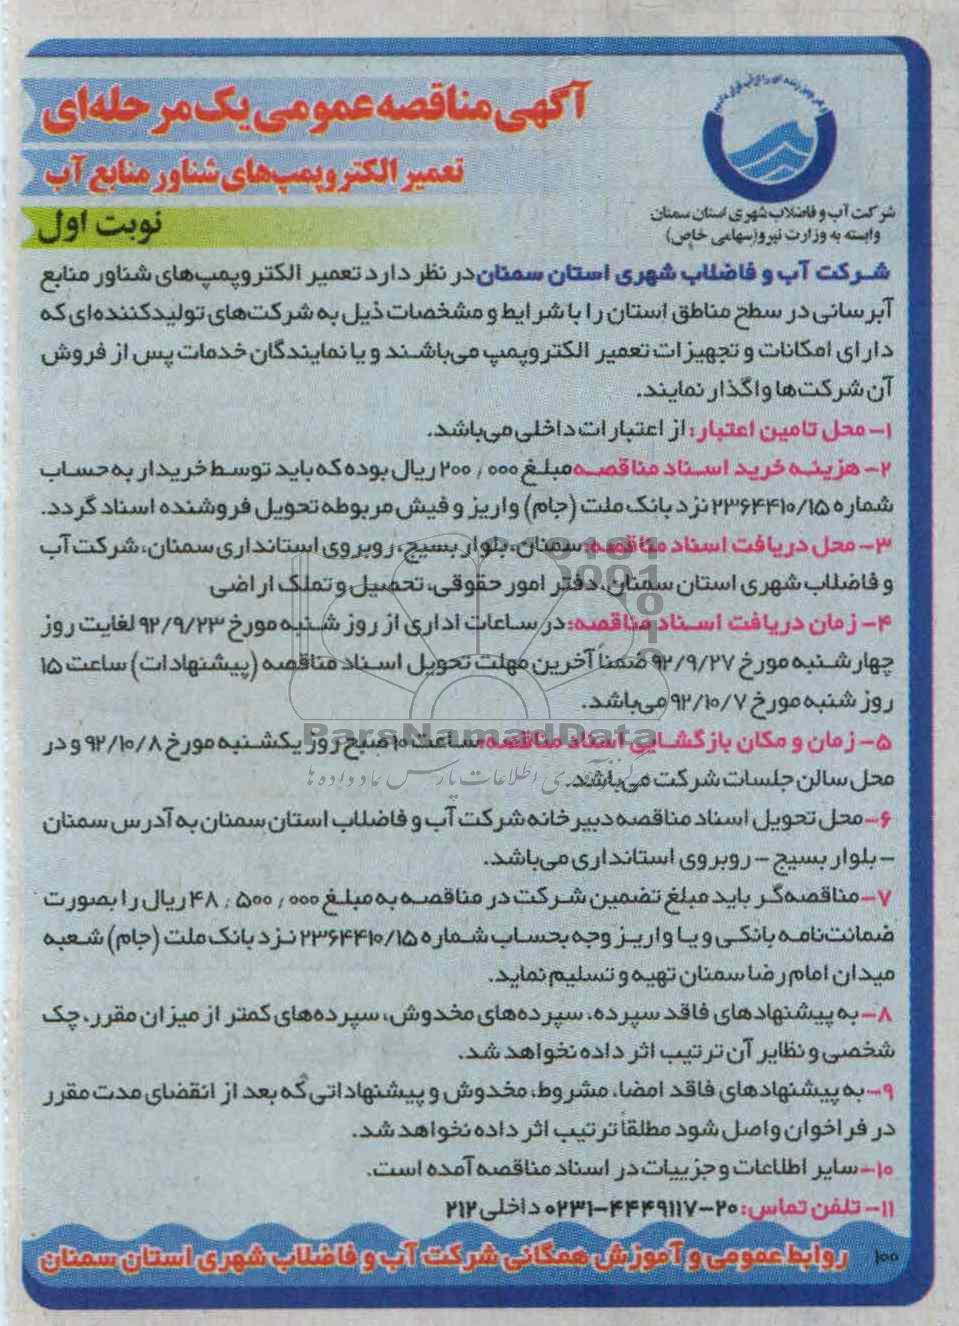 آگهی مناقصه عمومی یک مرحله‌ای
تعمیر الکتروپمپ‌های شناور منابع آب
نوبت اول
شرکت آب و فاضلاب شهری استان سمنان
وابسته به وزارت نیرو(سهامی خاص)
شرکت آب و فاضلاب شهری استان سمنان در نظر دارد تعمیر الکتروپمپ‌های شناور منابع
آبرسانی در سطح مناطق استان را با شرایط و مشخصات ذیل به شرکت‌های تولیدکننده‌ای که
دارای امکانات و تجهیزات تعمیر الکتروپمپ می‌باشند و یا نمایندگان خدمات پس از فروش
آن شرکت‌ها واگذار نمایند.
۱- محل تامین اعتبار: از اعتبارات داخلی می‌باشد.
۲- هزینه خرید اسناد مناقصه مبلغ ۲۰۰/۰۰۰ ریال بوده که باید توسط خریدار به حساب
شماره ۲۳۶۴۴۱۰/۱۵ نزد بانک ملت (جام) واریز و فیش مربوطه تحویل فروشنده اسناد گردد.
۳- محل دریافت اسناد مناقصه: سمنان، بلوار بسیج، روبروی استانداری سمنان، شرکت آب
و فاضلاب شهری استان سمنان، دفتر امور حقوقی، تحصیل و تملک اراضی
۴- زمان دریافت اسناد مناقصه: در ساعات اداری از روز شنبه مورخ ۹۲/۹/۲۳ لغایت روز
چهارشنبه مورخ ۹۲/۹/۲۷ ضمناً آخرین مهلت تحویل اسناد مناقصه (پیشنهادات) ساعت ۱۵
روز شنبه مورخ ۹۲/۱۰/۷ می‌باشد.
۵- زمان و مکان بازگشایی اسناد مناقصه: ساعت ۱۰ صبح روز یکشنبه مورخ ۹۲/۱۰/۸ و در
محل سالن جلسات شرکت می‌باشد.
۶- محل تحویل اسناد مناقصه دبیرخانه شرکت آب و فاضلاب استان سمنان به آدرس سمنان
- بلوار بسیج - روبروی استانداری می‌باشد.
۷- مناقصه‌گر باید مبلغ تضمین شرکت در مناقصه به مبلغ ۴۸/۵۰۰/۰۰۰ ریال را بصورت
ضمانت‌نامه بانکی و یا واریز وجه بحساب شماره ۲۳۶۴۴۱۰/۱۵ نزد بانک ملت (جام) شعبه
میدان امام رضا سمنان تهیه و تسلیم نماید.
۸- به پیشنهادهای فاقد سپرده، سپرده‌های مخدوش، سپرده‌های کمتر از میزان مقرر، چک
شخصی و نظایر آن ترتیب اثر داده نخواهد شد.
۹- به پیشنهادهای فاقد امضا، مشروط، مخدوش و پیشنهاداتی که بعد از انقضای مدت مقرر
در فراخوان واصل شود مطلقاً ترتیب اثر داده نخواهد شد.
۱۰- سایر اطلاعات و جزییات در اسناد مناقصه آمده است.
۱۱- تلفن تماس: ۲۰-۰۲۳۱-۴۴۴۹۱۱۷ داخلی ۲۱۲
روابط عمومی و آموزش همگانی شرکت آب و فاضلاب شهری استان سمنان
۱۰۰
ParsNamadData